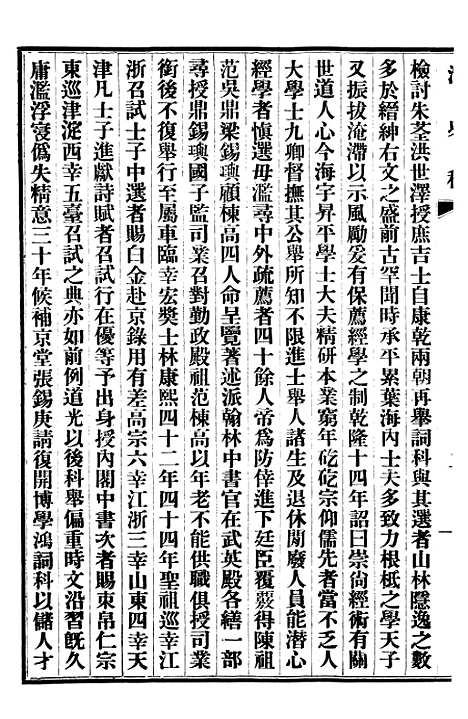 檢討朱荃洪世澤授庶吉士自康乾兩朝再舉詞科與其選者山林隱逸之數
多於縉紳右文之盛前古罕聞時承平累葉海內士夫多致力根柢之學天子
又振拔淹滯以示風勵爰有保薦經學之制乾隆十四年詔曰崇尙經術有關
世道人心今海宇昇平學士大夫精研本業窮年矻矻宗仰儒先者當不乏人
大學士九卿督撫其公舉所知不限進士舉人諸生及退休閒廢人員能潛心
經學者愼選毋濫尋中外疏薦者四十餘人帝爲防倖進下廷臣覆覈得陳祖
范吳鼎梁錫璵顧棟高四人命呈覽著述派翰林中書官在武英殿各繕一部
尋授鼎錫璵國子監司業召對勤政殿祖范棟高以年老不能供職俱授司業
銜後不復舉行至屬車臨幸宏獎士林康熙四十二年四十四年聖祖巡幸江
浙召試士子中選者賜白金赴京錄用有差高宗六幸江浙三幸山東四幸天
津凡士子進獻詩賦者召試行在優等予出身授內閣中書次者賜束帛仁宗
東巡津淀西幸五臺召試之典亦如前例道光以後科舉偏重時文沿習既久
庸濫浮寖僞失精意三十年候補京堂張錫庚請復開博學鴻詞科以儲人才